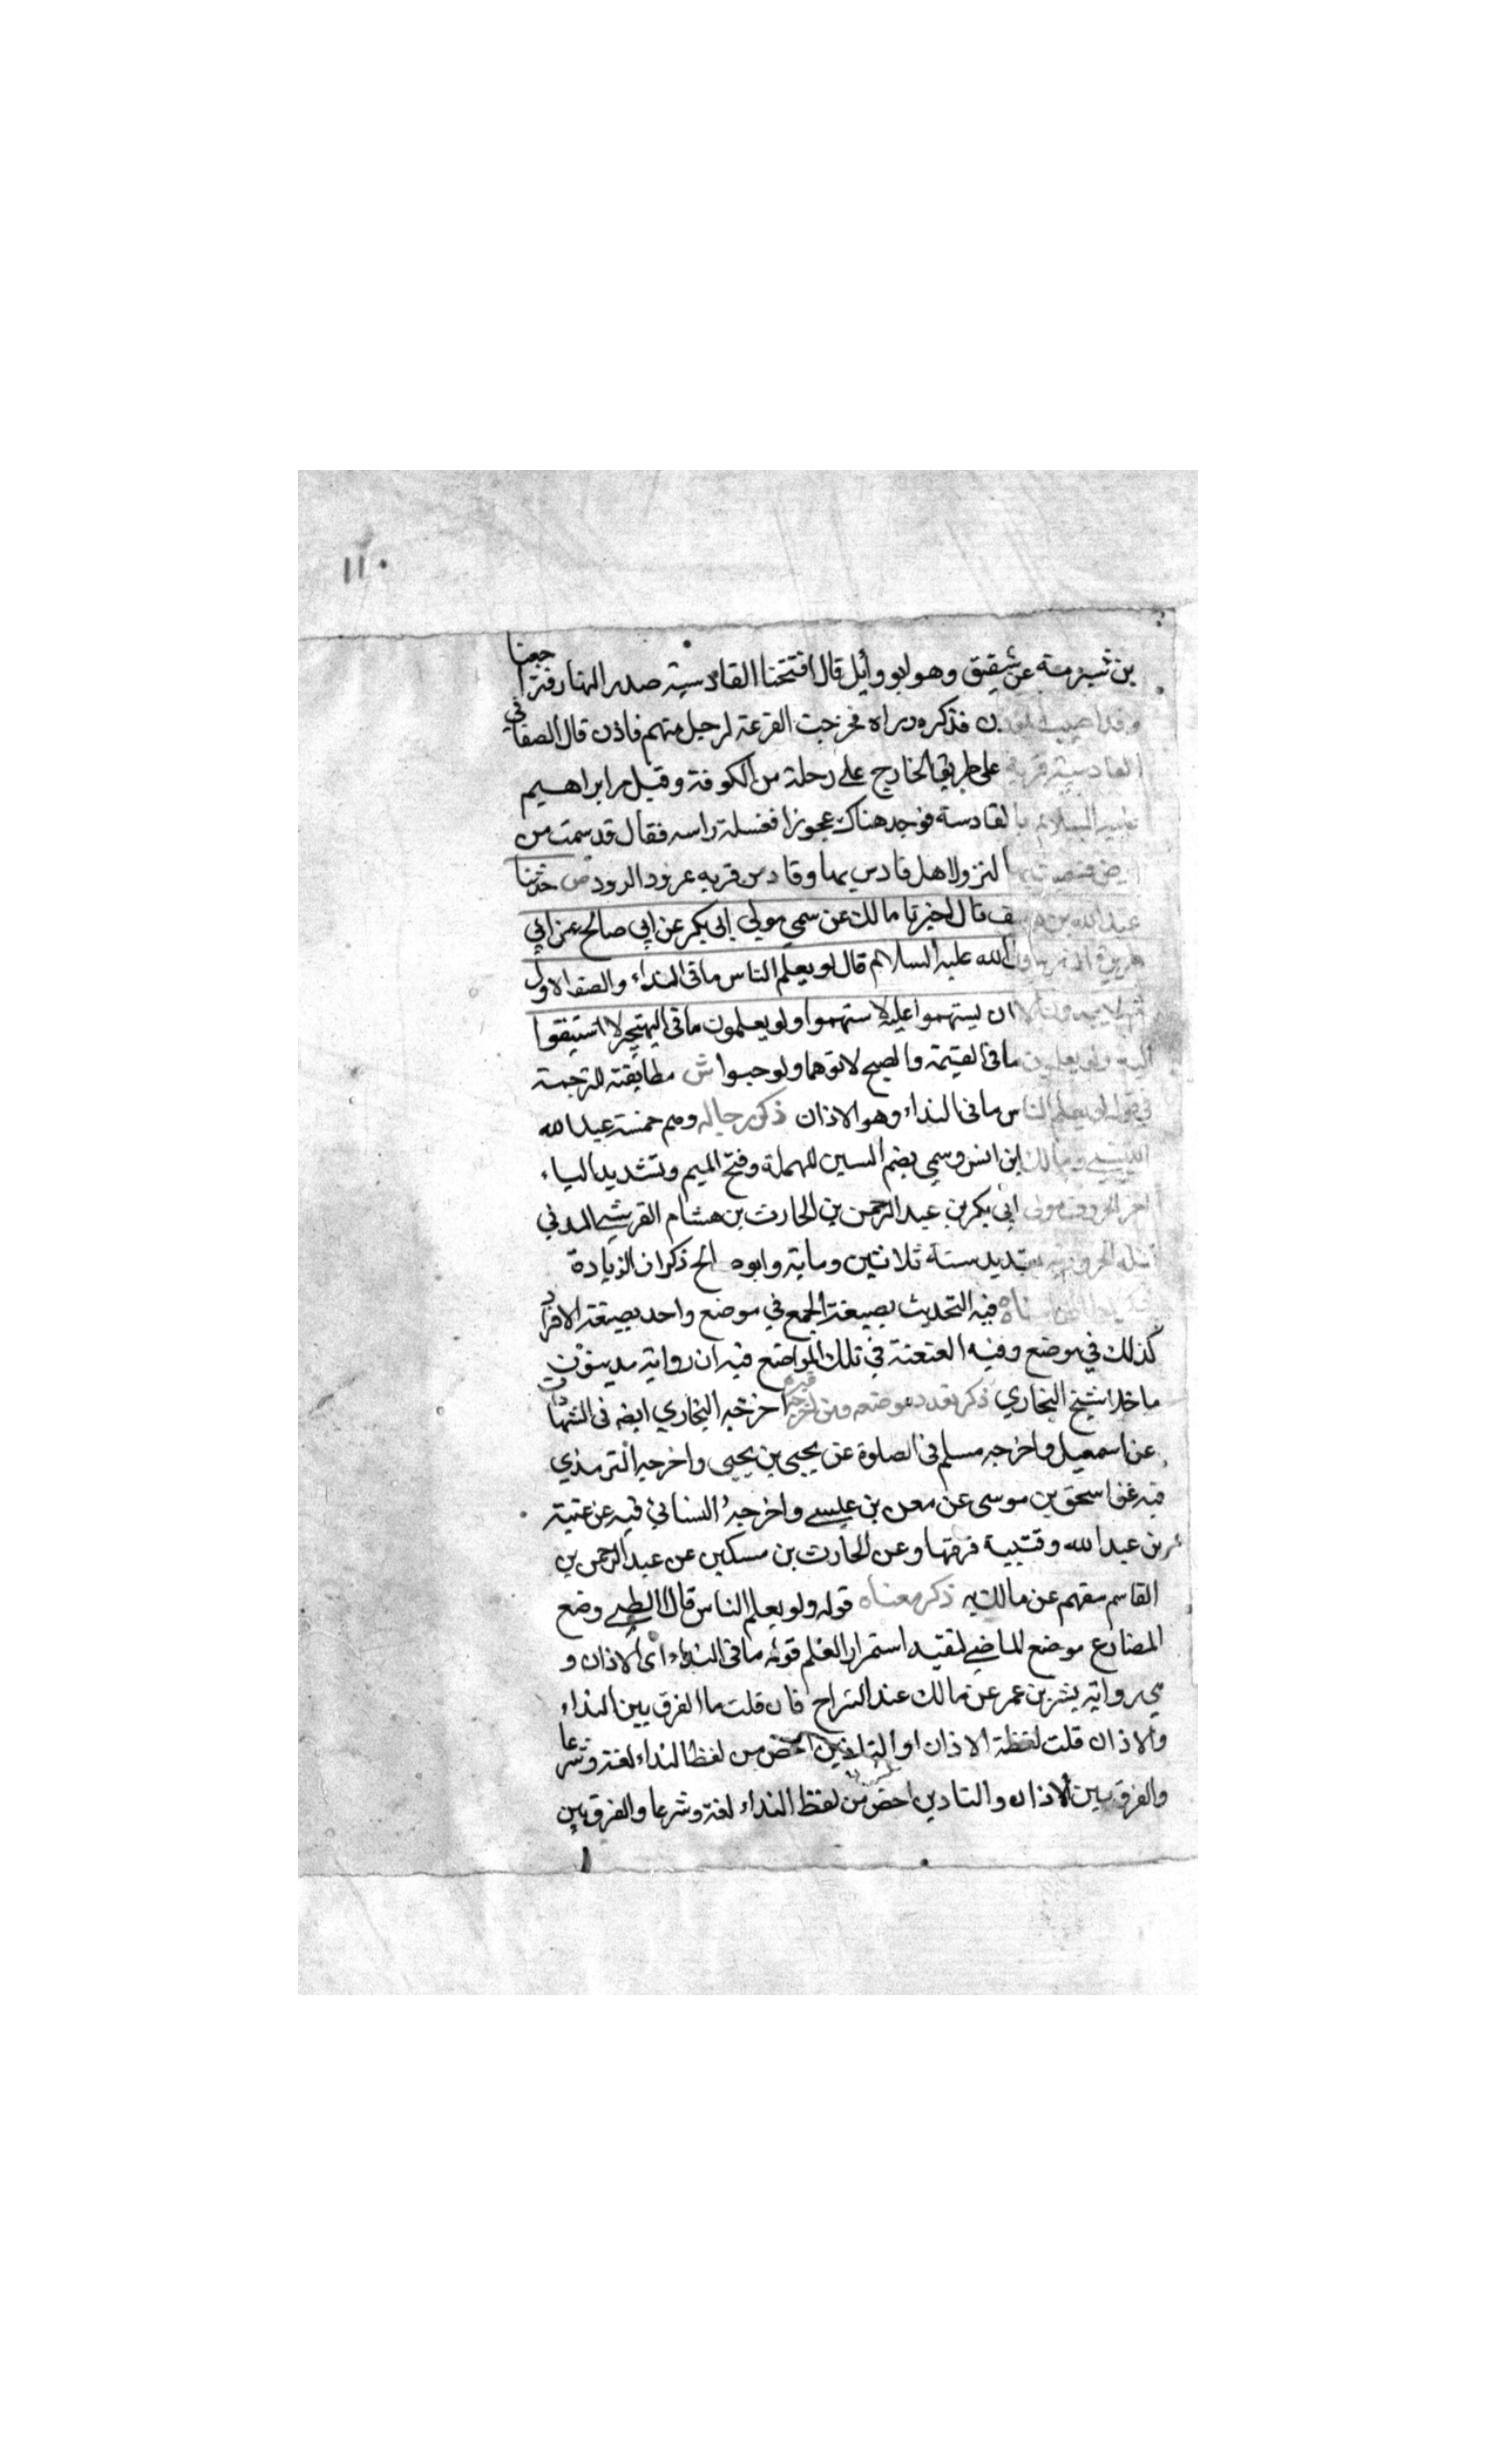 ١١٠
بن شبرمة عن شقيق وهو ابو وايل قال افتتحنا القادسية صدر النهار فتراجعنا
وقد اصيب المؤذن فذكره وزاد فخرجت القرعة لرجل منهم فاذن قال الصغاني
القادسية قرية على طريق الخارج على رحلة من الكوفة وقيل مر ابراهيم
عليه السلام بالقادسة فوجد هناك عجوزا فغسلت راسه فقال قدست من
ارض فسميت بها لنزول اهل قادس بها وقادس قرية عرو الرود ص حدثنا
عبد الله بن يوسف قال اخبرنا مالك عن سمي مولى ابي بكر عن ابي صالح عن ابي
هريرة ان رسول الله عليه السلام قال لو يعلم الناس ما في النداء والصف الاول
ثم لا يجدون الا ان يستهموا عليه لاستهموا ولو يعلمون ما في التهجير لا استبقوا
اليه ولو يعلمون ما في العتمة والصبح لاتوهما ولو حبوا ش مطابقته للترجمة
في قوله لو يعلم الناس ما في النداء وهو الاذان ذكر رجاله وهم خمسة عبد الله
التنيسي ومالك ابن انس وسمي بضم السين المهملة وفتح الميم وتشديد الياء
اخر الحروف مولى ابي بكر بن عبد الرحمن بن الحارث بن هشام القرشي المدني
قتله الحرورية بقديد سنة ثلاثين وماية وابو صالح ذكوان الزيادة
فيه التحديث بصيغة الجمع في موضع واحد بصيغة الافراد
كذلك في موضع وفيه العنعنة في تلك المواضع فيه ان رواته مدينون
ما خلا شيخ البخاري ذكر تعدد موضعه ومن اخرجه غيره اخرجه البخاري ايضه في الشهادات
عن اسمعيل واخرجه مسلم في الصلوة عن يحيى بن يحيى واخرجه الترمذي
فيه عن اسحق بن موسى عن معن بن عيسى واخرجه النسائي فيه عن عتبة
بن عبد الله وقتيبة فرقهما وعن الحارث بن مسكين عن عبد الرحمن بن
القاسم عن مالك به ذكر معناه قوله ولو يعلم الناس قال الطيبي وضع
المضارع موضع الماضي لتفيد استمرار العلم قوله ما في النداء اى الاذان و
هي رواية بشر بن عمر عن مالك عند السراج فان قلت ما الفرق بين النداء
والاذان قلت لفظة الاذان او التاذين اخص من لفظ النداء لغة وشرعا
والفرق بين الاذان والتادين اخص من لفظ النداء لغة وشرعا والفرق بين